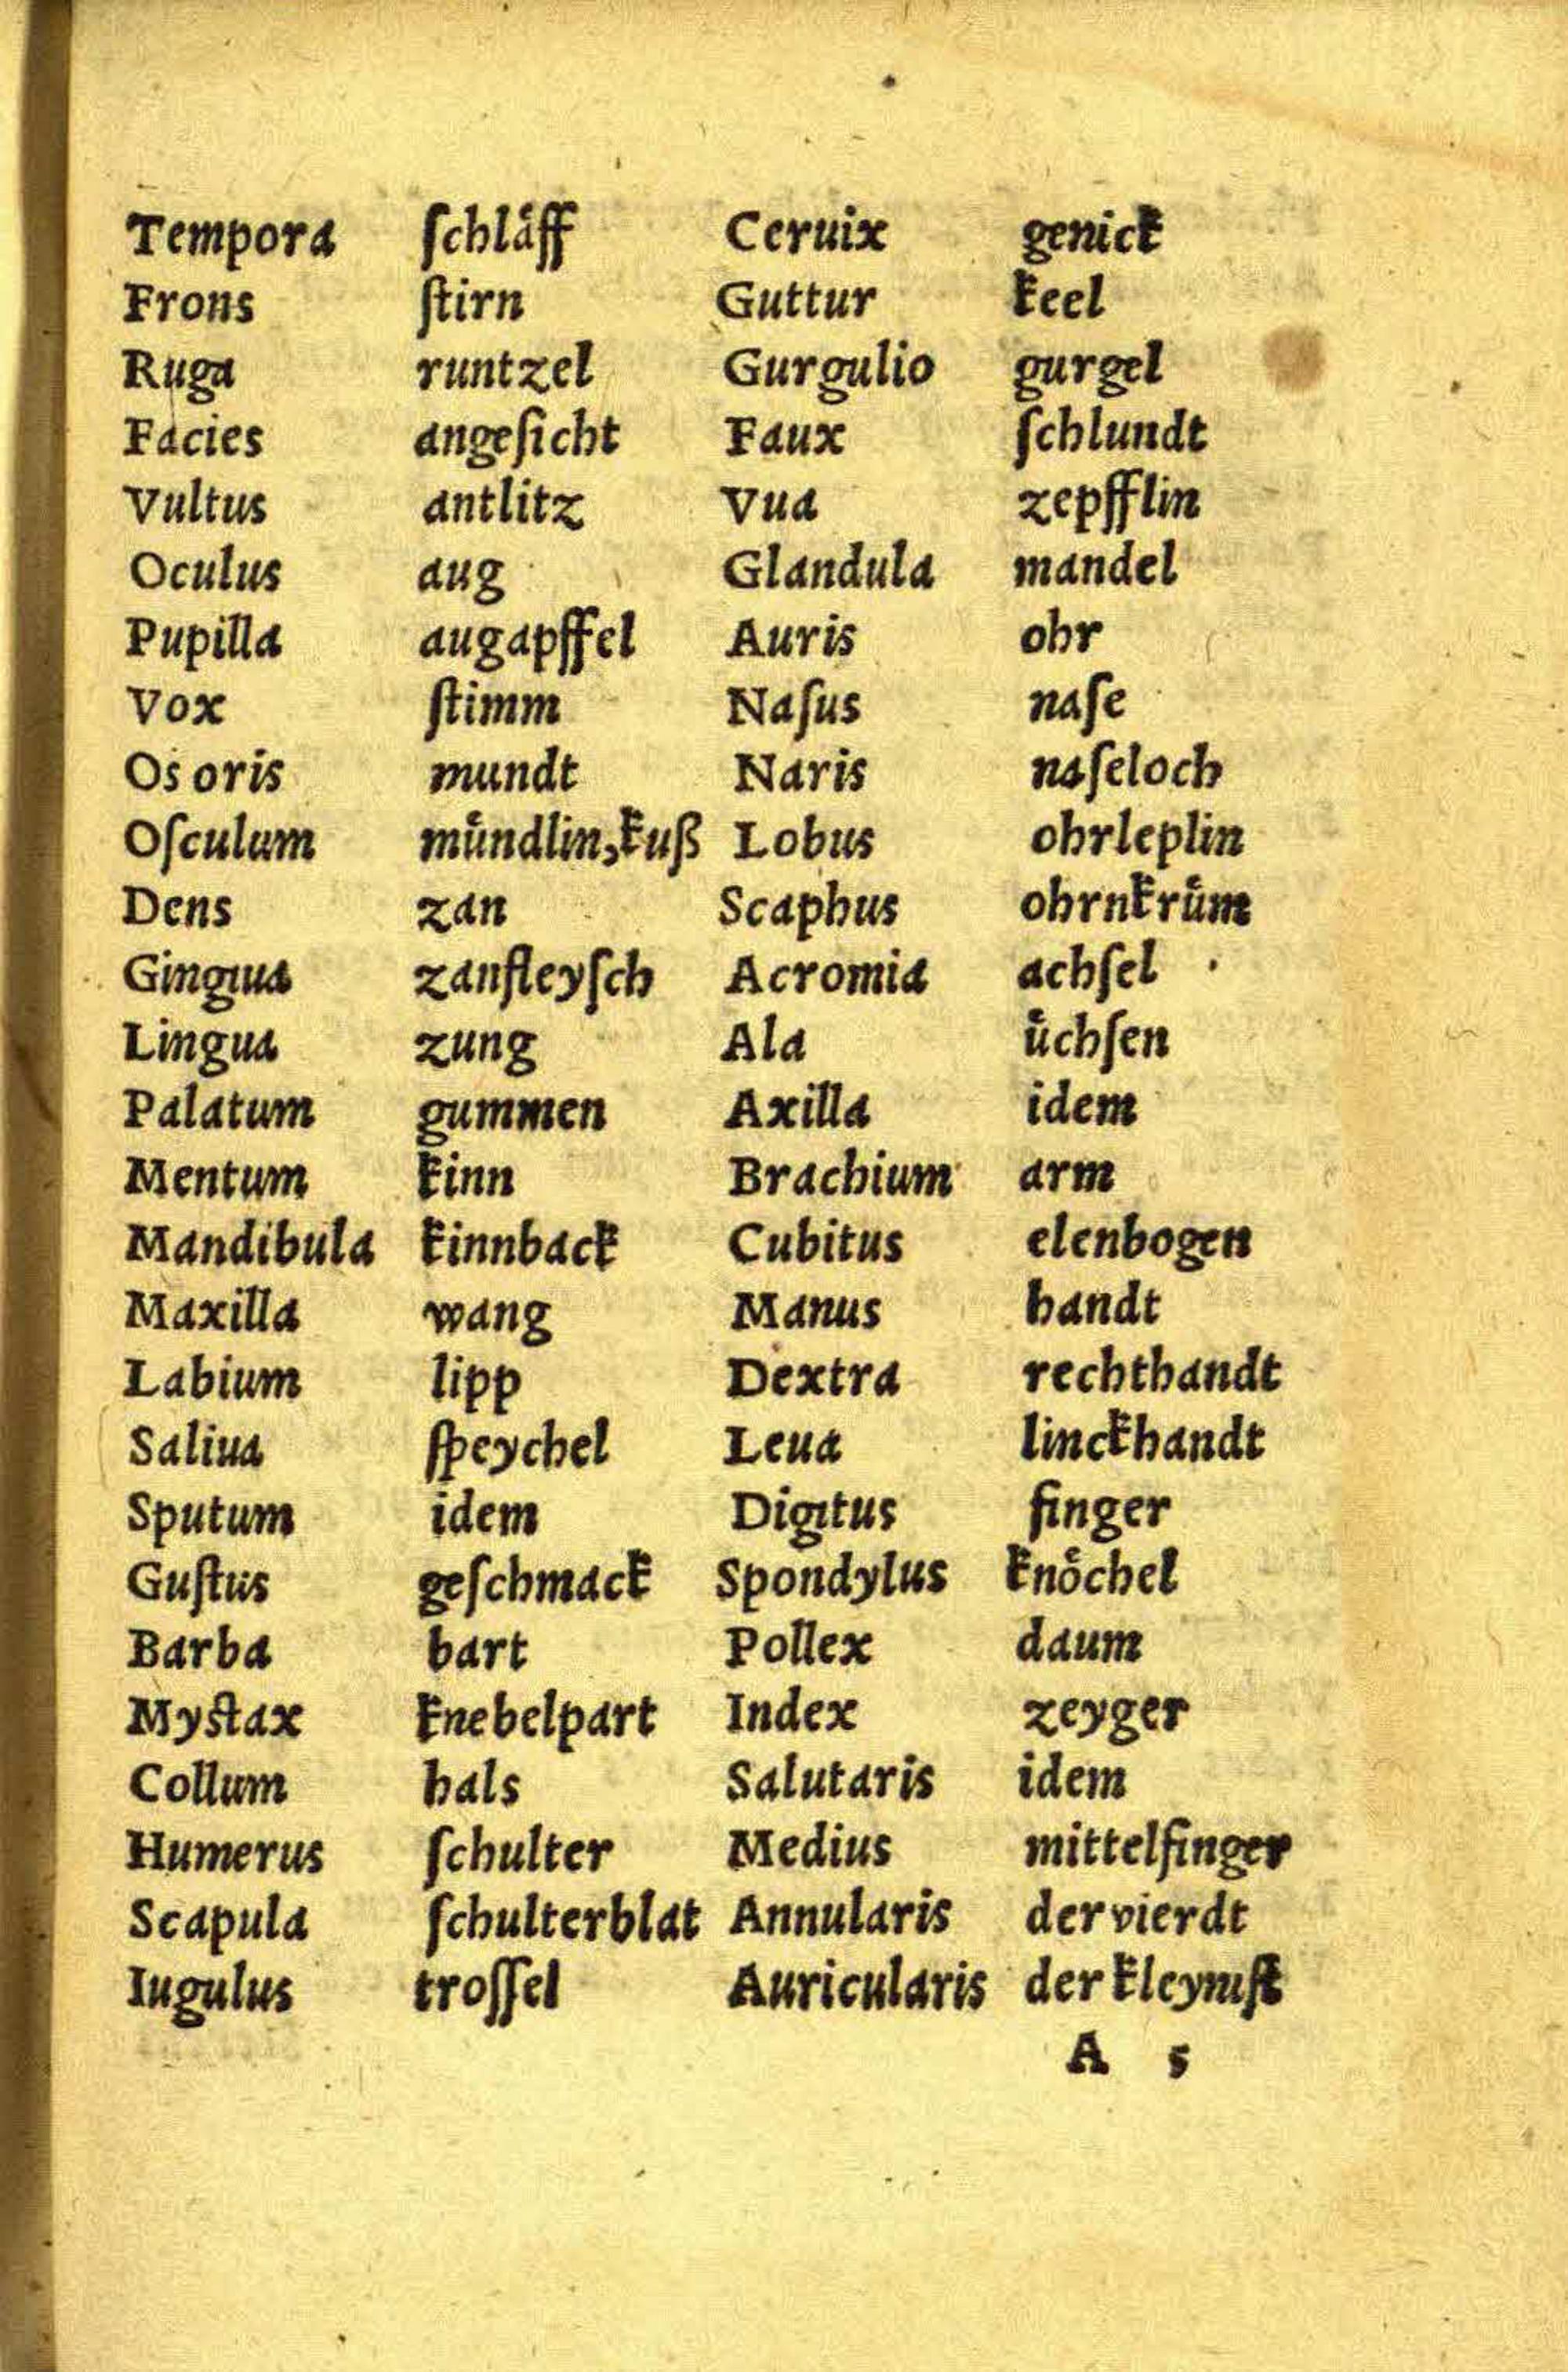 Tempora ſchlaͤff
Frons ſtirn
Ruga runtzel
Facies angeſicht
Vultus antlitz
Oculus aug
Pupilla augapffel
Vox ſtimm
Os oris mundt
Oſculum muͤndlin,kuß
Dens zan
Gingiua zanfleyſch
Lingua zung
Palatum gummen
Mentum kinn
Mandibula kinnback
Maxilla wang
Labium lipp
Saliua ſpeychel
Sputum idem
Guſtus geſchmack
Barba bart
Myſtax knebelpart
Collum hals
Humerus ſchulter
Scapula ſchulterblat
Iugulus troſſel
Ceruix genick
Guttur keel
Gurgulio gurgel
Faux ſchlundt
Vua zepfflin
Glandula mandel
Auris ohr
Naſus naſe
Naris naſeloch
Lobus ohrleplin
Scaphus ohrnkruͤm
Acromia achſel
Ala uͤchſen
Axilla idem
Brachium arm
Cubitus elenbogen
Manus handt
Dextra rechthandt
Leua linckhandt
Digitus finger
Spondylus knoͤchel
Pollex daum
Index zeyger
Salutaris idem
Medius mittelfinger
Annularis der vierdt
Auricularis der kleynſt
A 5